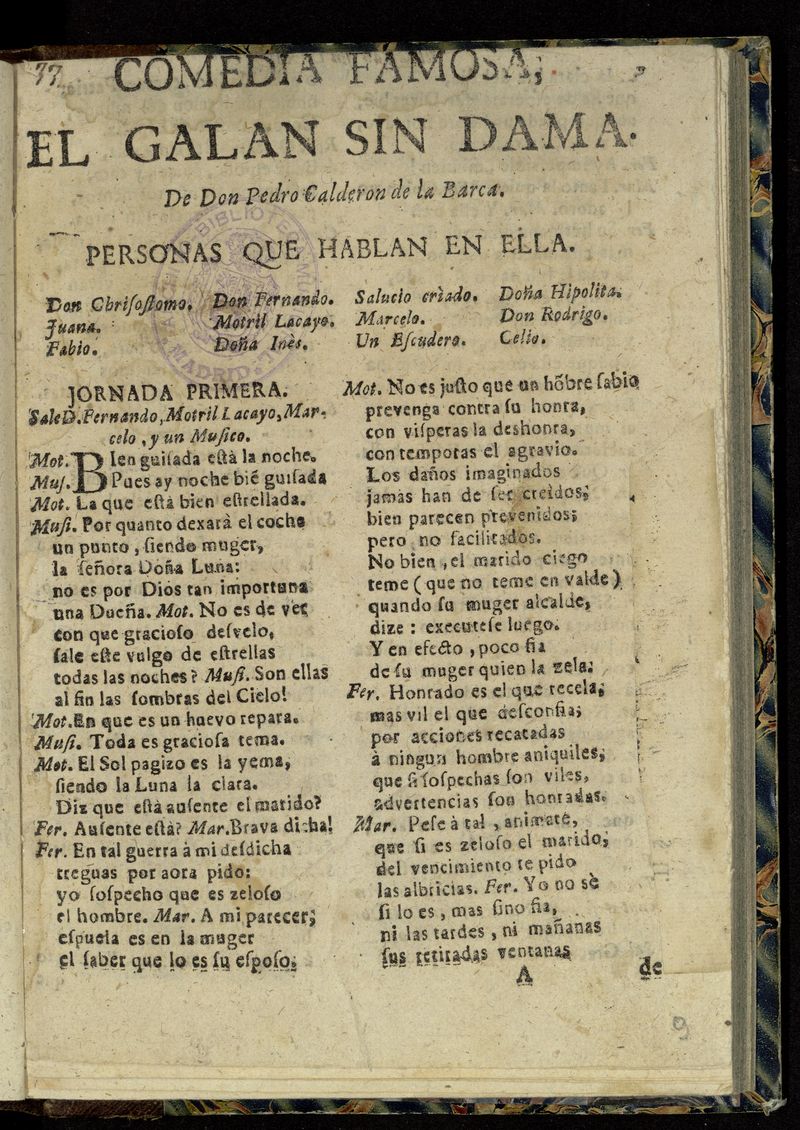 77
COMEDIA FAMOSA,
EL GALAN SIN DAMA.
De Don Pedro Calderon de la Barca.
PERSONAS QUE HABLAN EN ELLA.
Don Chriſoſtomo. Don Fernando. Salucio criado. Doña Hipolita.
Juana. Motril Lacayo. Marcelo. Don Rodrigo.
Fabio. Doña Inès. Un Eſcudero. Celio.
JORNADA PRIMERA.
Sale D. Fernando, Motril Lacayo, Mar-
celo, y un Muſico.
Mot. BIen guiſada eſtà la noche.
Muſ. Pues ay noche bié guiſada
Mot. La que eſtà bien eſtrellada.
Muſi. Por quanto dexarà el coche
un punto, ſiendo muger,
la ſeñora Doña Luna:
no es por Dios tan importuna
una Dueña. Mot. No es de ver
con que gracioſo deſvelo,
ſale eſte vulgo de eſtrellas
todas las noches? Muſi. Son ellas
al fin las ſombras del Cielo!
Mot. En que es un huevo repara.
Muſi. Toda es gracioſa tema.
Mot. El Sol pagizo es la yema,
ſiendo la Luna la clara.
Diz que eſtà auſente el marido?
Fer. Auſente eſtà? Mar. Brava dicha!
Fer. En tal guerra à mi deſdicha
treguas por aora pido:
yo ſoſpecho que es zeloſo
el hombre. Mar. A mi parecer;
eſpuela es en la muger
el ſaber que lo es ſu eſpoſo.
Mot. No es juſto que un hõbre ſabio
prevenga contra ſu honra,
con viſperas la deshonra,
con temporas el agravio.
Los daños imaginados
jamàs han de ſer creìdos;
bien parecen prevenidos;
pero no facilitados.
No bien, el marido ciego
teme (que no teme en valde)
quando ſu muger alcalde,
dize: executeſe luego.
Y en efecto, poco fia
de ſu muger quien la zela;
Fer. Honrado es el que recela;
mas vil el que deſconfia;
por acciones recatadas
à ningun hombre aniquiles,
que ſi ſoſpechas ſon viles,
advertencias ſon honradas.
Mar. Peſe à tal, animate,
que ſi es zeloſo el marido,
del vencimiento te pido
las albricias. Fer. Yo no sè
ſi lo es, mas ſino fia,
ni las tardes, ni mañanas
ſus retiradas ventanas
A de
9